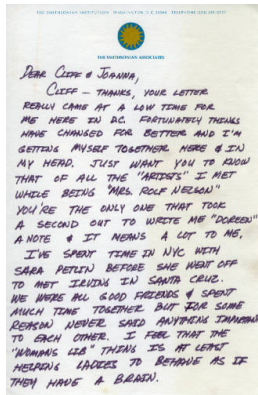 THE SMITHSONIAN INSTITUTION WASHINGTON, D.C. 20560 TELEPHONE
THE SMITHSONIAN ASSOCIATES
DEAR CLIFF & JOANNA,
CLIFF – THANKS, YOUR LETTER
REALLY CAME AT A LOW TIME FOR
ME HERE IN D.C. FORTUNATELY THINGS
HAVE CHANGED FOR BETTER AND I'M
GETTING MYSELF TOGETHER HERE & IN
MY HEAD. JUST WANT YOU TO KNOW
THAT OF ALL THE "ARTISTS" I MET
WHILE BEING "MRS. ROLF NELSON"
YOU'RE THE ONLY ONE THAT TOOK
A SECOND OUT TO WRITE ME "DOREEN"
A NOTE & IT MEANS A LOT TO ME.
I'VE SPENT TIME IN NYC WITH
SARA PETLIN BEFORE SHE WENT OFF
TO MET IRVING IN SANTA CRUZ.
WE WERE ALL GOOD FRIENDS & SPENT
MUCH TIME TOGETHER BUT FOR SOME
REASON NEVER SAID ANYTHING IMPORTANT
TO EACH OTHER. I FEEL THAT THE
"WOMANS LIB" THING IS AT LEAST
HELPING LADIES TO BEHAVE AS IF
THEY HAVE A BRAIN.